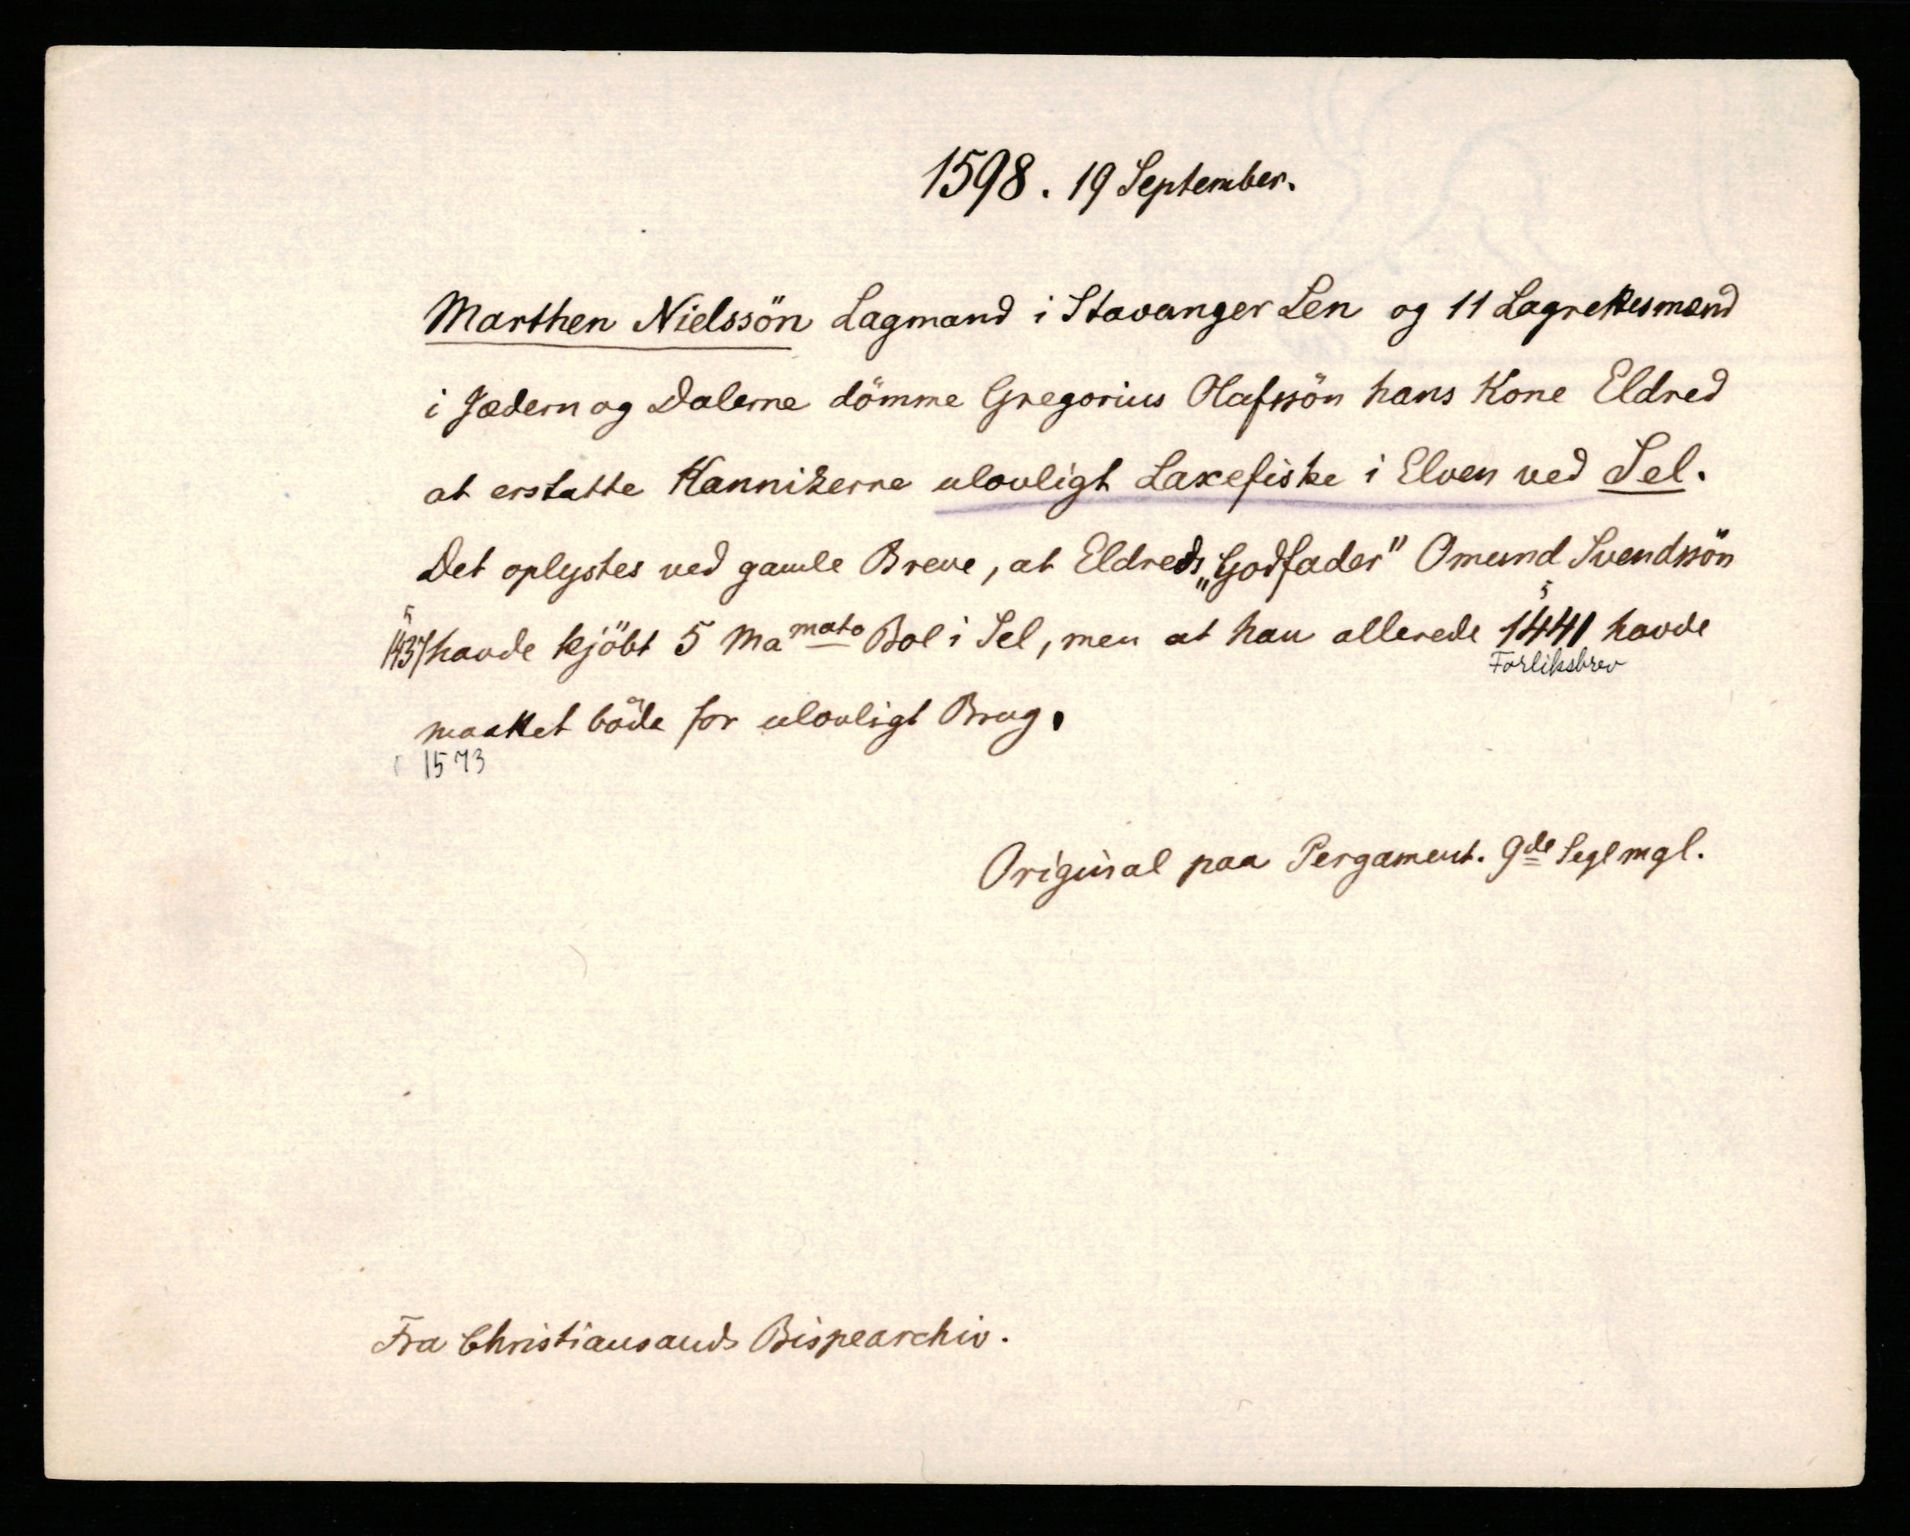 1598. 19 September.
Marthen Nielssön Lagmand i Stavanger Len og 11 Lagrettesmænd
i Jædern og Dalerne dömme Gregorius Olafssön hans Kone Eldred
at erstatte Kannikerne ulovligt Laxefiske i Elven ved Sel.
Det oplystes ved gamle Breve, at Eldreds „Godfader" Omund Svendssön
5 5
1437/havde kjöbt 5 Ma mato Bol i Sel, men at han allerede 1441 havde
Forliksbrev
maattet böde for ulovligt Brug.
1573
Original paa Pergament. 9de Segl mgl.
Fra Christiansands Bispearchiv.